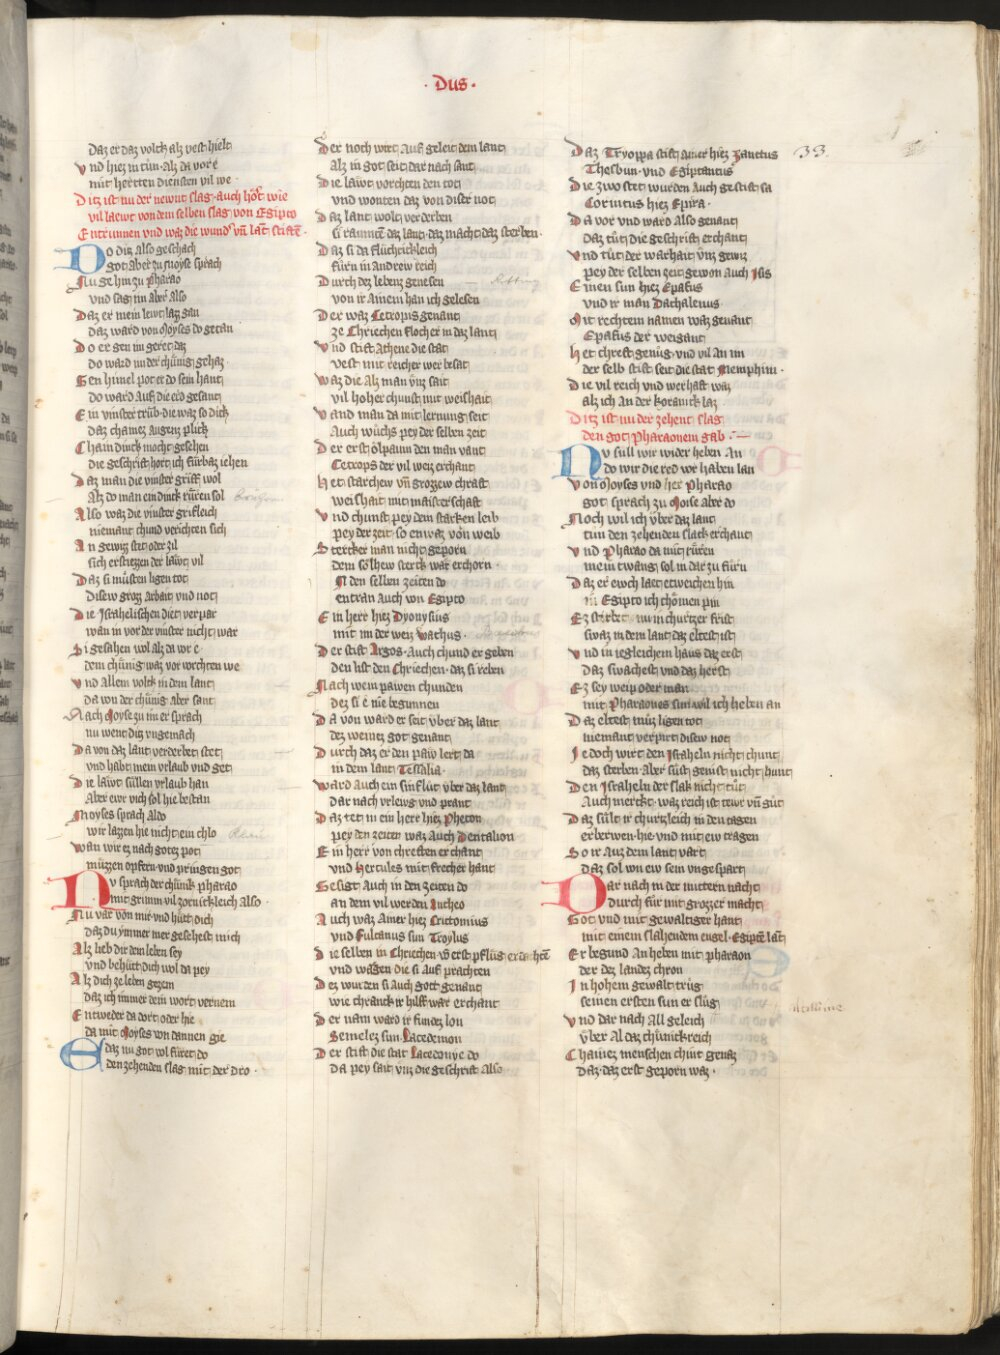 · Dus ·
33
Daz er daz volch alz vest hielt
Vnd hiez in tůn · Alz da vor e
mit herten diensten vil we ·
Ditz ist nu der newnt slag · auch hőrt wie
vil laewt von dem selben slag von Egipto
Entrunnen vnd waz die wunders vn̄ lant stiften ·
Do ditz also geschach
got aber zu moyse sprach
Nu ge hin zu Pharao
vnd sag im aber Also
Daz er mein lewt lazz gan
daz ward von Moyses do getan
Do er gen im geret daz
do ward im der chůnig gehaz
Gen himel pot er do sein hant
do ward Auf die erd gesant
Ein vinster trůb · die waz so dick
daz chainez augen plick
Chain dinck mocht gesehen
die geschrift hort ich fůrbaz iehen
Daz man die vinster greiff wol
Alz do man ein dinck růren sol
Also waz die vinster greifleich
niemant chund verichten sich
An gewiz stet oder zil
sich ersiezzen der lawt vil
Daz si můsten ligen tot
Disew grozz Arbait vnd not
Die Israhelischen diet verpar
wan in vor der vinster nicht war
Si gesahen wol alz da vor e
dem chůnig waz vor vorchten we
Vnd Allem volck in dem lant
da von der chůnig aber sant
Nach Moyse zu im er sprach
nu went diz vngemach
Da von daz lant verderbet stet
vnd habt mein vrlaub vnd get
Die lawt sůllen vrlaub han
Aber ewr vich sol hie bestan
Moyses sprach Aldo
wir lazzen hie nicht ein chlo
Wan wir ez nach gotez pot
můzzen opfern vnd pringen got
Nv sprach der chůnik Pharao
mit grimm vil zornickleich Also ·
Nu var von mir vnd hůtt dich
daz du ymmer mer gesehest mich
Alz lieb dir dein leben sey
vnd behůtt dich wol da pey
Alz dich ze leben gezem
daz ich immer dein wort vernem
Entweder da dort oder hie
da mit Moyses von dannen gie
Daz nu got wol fůret do
den zehenden slag mit der dro ·
Der noch wirt Auf geleit dem lant
Alz in got seit dar nach sant
Die lawt vorchten den tot
vnd wonten daz von diser not
Daz lant wolt verderben
si raumten daz lant · daz macht daz sterben ·
Daz si da flůchtickleich
fůrn in andrew reich
Durch dez lebenz genesen
von ir Ainem han ich gelesen
Der waz Cetropis genant
ze Chriechen floch er in daz lant
Vnd stift Athene die stat
vest mit reicher wer besat
Waz die Alz man vnz sait
vil hoher chunst mit weishait
Wand man da mit lernung seit
Auch wůchs pey der selben zeit
Der erst ölpaum den man vant
Cetrops der vil weiz erchant
Het starchew vn̄ grozzew chraft
weishait mit maisterschaft
Vnd chunst pey dem starken leib
pey der zeit · so en waz von weib
Stercker man nicht geporn
dem sölhew sterck war erchorn ·
In den selben zeiten do
entran Auch von Egipto
Ein herr hiez Dyonysius
mit im der weiz Bachus ·
Der stift Argos · Auch chund er geben
den list den Chriechen · daz si reben
Nach wein pawen chunden
dez si e nie begunnen
Da von ward er seit vber daz lant
dez weinez got genant
Durch daz er den paw lert da
in dem lant Tessalia ·
Ward Auch ein sinflůt vber daz lant
dar nach vrlewg vnd prant
Daz tet in ein herr hiez Pheton
pey den zeiten waz Auch Deucalion
Ein herr von chreften erchant
vnd Hercules mit frecher hant
Gesigt Auch in den zeiten do
an dem vil werden Antheo
Auch waz Ainer hiez Erictonius
vnd Fulcanus sun Troylus
Die selben in Chriechen den erst pflůg erdachten
vnd wagen die si Auf prachten
Dez wurden si Auch gott genant
wie chranck ir hilff war erchant
Der nam ward ir funtez lon
Semelez sun Lacedemon
Der stift die stat Lacedonye do
Da pey sait vnz die geschrift Also
Daz Tryoppa stift ainer hiez Xanctus
Thesbun · vnd Egiptantus
Die zwo stet wurden Auch gestift sa
Corintus hiez Epira ·
Da vor vnd ward Also genant
daz tůt die geschrift erchant
Vnd tůt der warhait vnz gewiz
pey der selben zeit gewon auch Isis
Einen sun hiez Epafus
vnd ir man Dachalenus ·
Mit rechtem namen waz genant
Epafus der weigant
Het chreft genůg · vnd vil An im
der selb stift seit die stat Memphim ·
Die vil reich vnd werhaft waz
alz ich An der Koranick laz
Ditz ist nu der zehent slag
den got Pharaonem gab · —
Nv sull wir wider heben An
do wir die red vor haben lan
Von Moyses vnd her Pharao
got sprach zu Moyse aber do
Noch wil ich vber daz lant
tun den zehenden slack erchant
Vnd Pharao da mit růren
mein twang sol in dar zu fůrn
Daz er ewch laet entweichen hin
in Egipto ich chömen pin
Ez sterbet nu in churtzer frist
swaz in dem lant daz eltest ist
Vnd in iegleichem haus daz erst
daz swachest vnd daz herst
Ez sey weip oder man
mit Pharaones sun wil ich heben an
Daz eltest můz ligen tot
niemant verpirt disew not
Iedoch wirt den Israheln nicht chunt
daz sterben · Aber sůst genist nicht hunt
Den Israheln der slak nicht tůt
Auch merckt · waz reich ist tewr vn̄ gůt
Daz sůlt ir churtzleich in den tagen
erberwen · hie · vnd mit ew tragen
So ir Auz dem lant vart
daz sol von ew sein vngespart
Dar nach in der mittern nacht
Durch für mit grozzer macht
Got vnd mit gewaltiger hant
mit einem slahendem engel · Egiptē lāt
Er begund An heben mit pharaon
der dez landez chron
In hohem gewalt trůg
seinen ersten sun er slůg
Vnd dar nach All geleich
vber Al daz chůnickreich
Chainez menschen chint genaz
daz · daz erst geporn waz ·